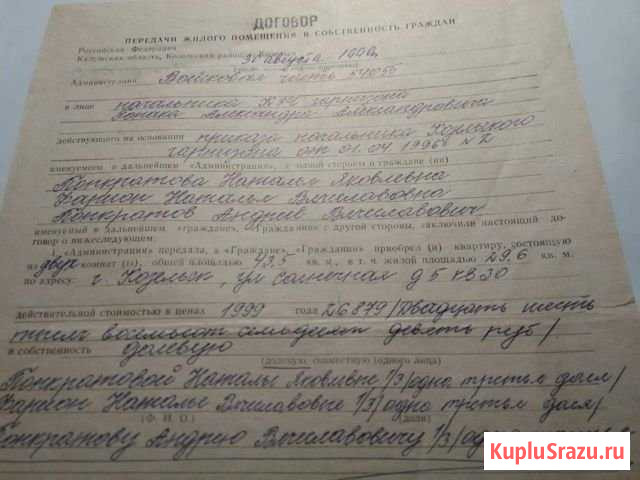 ДОГОВОР
ПЕРЕДАЧИ ЖИЛОГО ПОМЕЩЕНИЯ В СОБСТВЕННОСТЬ ГРАЖДАН
Российская Федерация
Калужская область, Козельский район, г.
30 августа
Администрация Войсковая часть 54055
в лице начальника КЭЧ гарнизона
Александра Александровича
действующего на основании приказа начальника Козельского
гарнизона от 01.04 1996 N2
именуемем в дальнейшем «Администрация», с одной стороны и граждане (ин)
Понкратова Наталья Яковлевна
Фарион Наталья Вячиславовна
Понкратов Андрей Вячиславович
именуемый в дальнейшем «граждане», «Гражданин» с другой стороны, заключили настоящий до-
говор о нижеследующем:
1. «Администрация» передала, а «Граждане», «Гражданин» приобрел (и) квартиру, состоящую
из двух комнат (ы), общей площадью 43,5 кв. м., в т. ч. жилой площадью 29,6 кв. м.
по адресу: г. Козельск, ул солнечная д 5 кв 30
действительной стоимостью в ценах 1999 года 26879 /Двадцать шесть
тысяч восемьсот семьдесят девять руб/
в собственность долевую
(долевую, совместную (одного лица)
Понкратовой Натальи Яковлевне 1/3 /одна третья доля/
Фарион Натальи Вячиславовне 1/3 /одна третья доля/
(Ф. И. О.) (доли)
Понкратову Андрею Вячиславовичу 1/3 /одна
KupluSrazu.ru